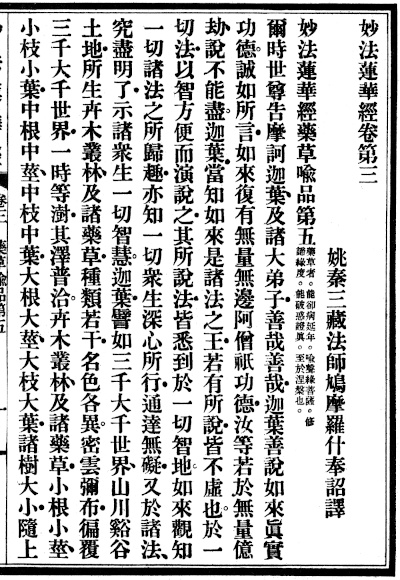 妙法蓮華經卷第三
姚秦三藏法師鳩摩羅什奉詔譯
妙法蓮華經藥草喻品第五
藥草者。能卻病延年。喻聲緣菩薩。修
諦緣度。能破惑證眞。至於涅槃也。
爾時世尊告摩訶迦葉及諸大弟子善哉善哉迦葉善說如來眞實
功德。誠如所言。如來復有無量無邊阿僧祇功德。汝等若於無量億
劫說不能盡。迦葉當知。如來是諸法之王。若有所說皆不虛也。於一
切法以智方便而演說之。其所說法皆悉到於一切智地。如來觀知
一切諸法之所歸趣。亦知一切衆生深心所行。通達無礙。又於諸法、
究盡明了。示諸衆生一切智慧。迦葉譬如三千大千世界、山川谿谷
土地所生卉木叢林及諸藥草。種類若干。名色各異。密雲彌布。徧覆
三千大千世界。一時等澍。其澤普洽。卉木叢林及諸藥草。小根小莖、
小枝小葉。中根中莖、中枝中葉。大根大莖、大枝大葉。諸樹大小、隨上
卷三 藥草喻品第五 一